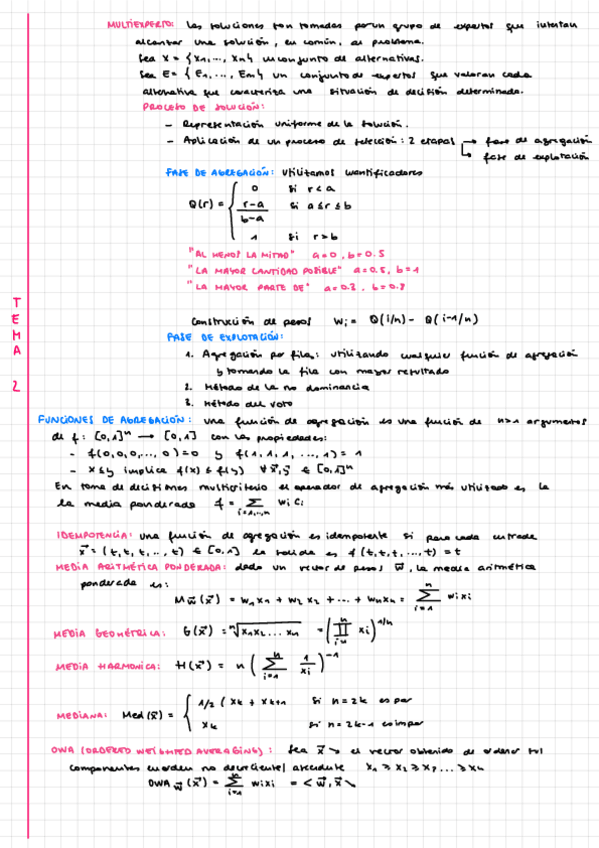 MULTIEXPERTO: Las soluciones son tomadas por un grupo de expertos que intentan
alcanzar una solución, en común, al problema.
Sea X = {X1,..., Xn} un conjunto de alternativas.
Sea E = {E1,..., Em} un conjunto de expertos que valoran cada
alternativa que caracteriza una situación de decisión determinada.
PROCESO DE SOLUCIÓN:
- Representación uniforme de la solución.
- Aplicación de un proceso de selección: 2 etapas → fase de agregación
↳ fase de explotación
FASE DE AGREGACIÓN: Utilizamos cuantificadores
Q(r) = { 0 si r < a
r-a / b-a si a ≤ r ≤ b
1 si r > b
"AL MENOS LA MITAD" a=0, b=0.5
"LA MAYOR CANTIDAD POSIBLE" a=0.5, b=1
"LA MAYOR PARTE DE" a=0.3, b=0.8
Construcción de pesos Wi = Q(i/n) - Q(i-1/n)
FASE DE EXPLOTACIÓN:
1. Agregación por filas: utilizando cualquier función de agregación
y tomando la fila con mayor resultado
2. Método de la no dominancia
3. Método del voto
TEMA 2
FUNCIONES DE AGREGACIÓN: una función de agregación es una función de n>1 argumentos
de f: [0,1]ⁿ → [0,1] con las propiedades:
- f(0,0,0,..., 0)=0 y f(1,1,1,...,1) = 1
- x≤y implica f(x) ≤ f(y) ∀x⃗,y⃗ ∈ [0,1]ⁿ
En toma de decisiones multicriterio el operador de agregación más utilizado es la
la media ponderada f = ∑ i=1,..,n wi ci
IDEMPOTENCIA: una función de agregación es idempotente si para cada entrada
x⃗ = (t,t,t,..,t) ∈ [0,1] la salida es f(t,t,t,...,t) = t
MEDIA ARITMÉTICA PONDERADA: dado un vector de pesos w⃗, la media aritmética
ponderada es:
M w⃗(x⃗) = w1x1 + w2x2 + ... + wnxn = ∑ i=1 n wixi
MEDIA GEOMÉTRICA: G(x⃗) = ⁿ√x1x2...xn = (∏ i=1 n xi)^1/n
MEDIA HARMONICA: H(x⃗) = n (∑ i=1 n 1/xi)^-1
MEDIANA: Med(x⃗) = { 1/2 (xk + xk+1 si n=2k es par
xk si n=2k-1 es impar
OWA (ORDERED WEIGHTED AVERAGING): Sea x⃗↘ el vector obtenido de ordenar sus
componentes en orden no decreciente x1 ≥ x2 ≥ x3 ... ≥ xn
OWA w⃗(x⃗) = ∑ i=1 n wixi = < w⃗, x⃗↘